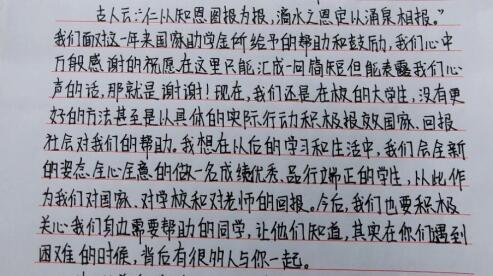 古人云:“仁以知恩图报为报,滴水之恩定以涌泉相报。”
我们面对这一年来国家助学金所给予的帮助和鼓励,我们心中
万般感谢的祝愿在这里只能汇成一问简短但能表露我们心
声的话,那就是谢谢!现在,我们还是在校的大学生,没有更
好的方法甚至是以具体的实际行动积极报效国家、回报
社会对我们的帮助。我想在以后的学习和生活中,我们会全新
的姿态全心全意的做一名成绩优秀、品行端正的学生,以此作
为我们对国家、对学校和对老师的回报。今后,我们也要积极
关心我们身边需要帮助的同学,让他们知道,其实在你们遇到
困难的时候,背后有很的人与你一起。